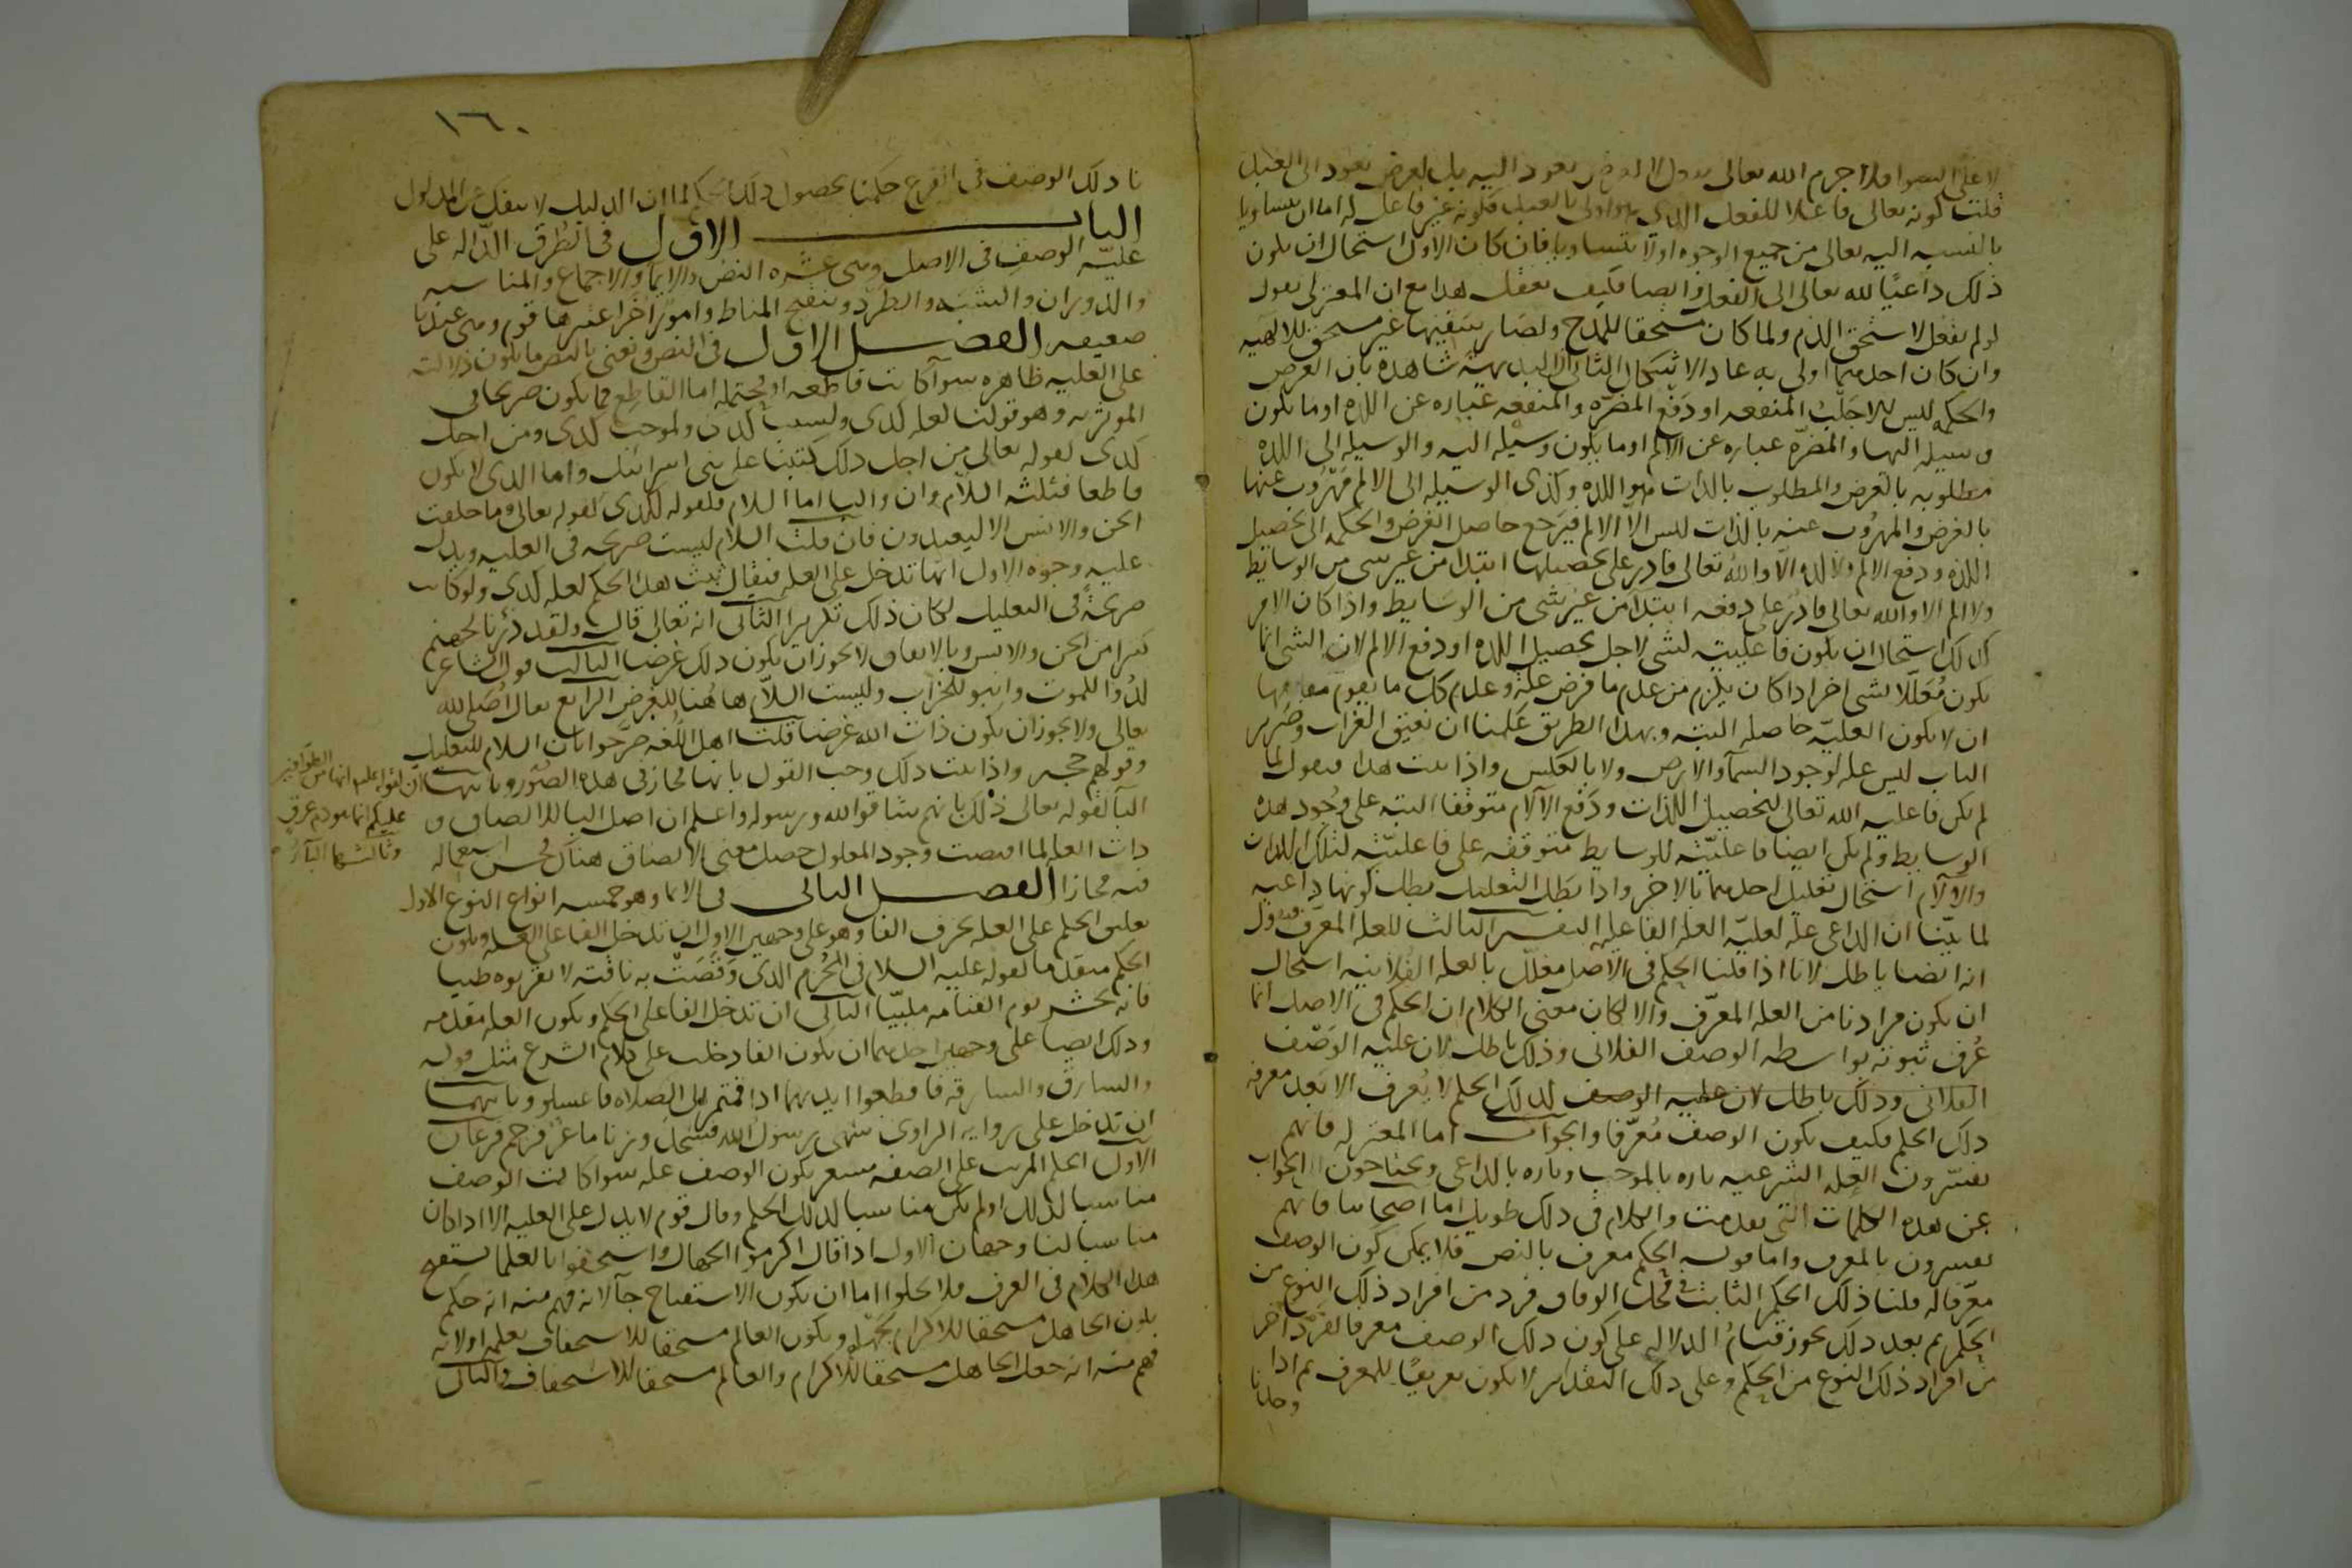 لا على السوا فلا جرم الله تعالى يفعل لا لغرض يعود اليه بل لغرض يعود الى العبد
قلت كونه تعالى فاعلا للفعل الذي هو اولى بالعبد وكونه غير فاعل له اما ان يتساويا
بالنسبه اليه تعالى من جميع الوجوه اولا يتساويا فان كان الاول استحال ان يكون
ذلك داعيا لله تعالى الى الفعل وايضا فكيف يعقل هذا مع ان المعتزلى يقول
لو لم يفعل لاستحق الذم ولما كان مستحقا للمدح ولصار سفيها غير مستحق للالهيه
وان كان احدهما اولى به عاد الاشكال الثانى ان البديهة شاهدة بان الغرض
والحكمه ليس الا جلب المنفعه او دفع المضره والمنفعه عباره عن اللذه او ما يكون
وسيله اليها والمضرة عباره عن الالم او ما يكون وسيله اليه والوسيله الى اللذه
مطلوبه بالغرض والمطلوب بالذات هو اللذه وكذى الوسيله الى الالم مهروب عنها
بالغرض والمهروب عنه بالذات ليس الا الالم فيرجع حاصل الغرض والحكمه الى تحصيل
اللذه ودفع الالم ولا لذه الا والله تعالى قادر على تحصيلها ابتدا من غير شى من الوسايط
ولا الم الا والله تعالى قادر على دفعه ابتدآ من غير شى من الوسايط واذا كان الامر
كذلك استحال ان يكون فاعليته لشى لاجل تحصيل اللذه او دفع الالم لان الشى انما
يكون معللا بشى اخر اذا كان يلزم من عدم ما فرض علة وعدم كل ما يقوم مقامها
ان لا يكون العليه حاصله البته وبهذا الطريق علمنا ان نعيق الغراب وضرير
الباب ليس عله لوجود السمآ والارض ولا بالعكس واذا ثبت هذا فنقول لما
لم يكن فاعليه الله تعالى لتحصيل اللذات ودفع الآلام متوقفا البته على وجود هذه
الوسايط ولم يكن ايضا فاعليته للوسايط متوقفه على فاعليته لتلك اللذات
والآلام استحال تعليل احدهما بالاخر واذا بطل التعليل بطل كونها داعيه
لما بينا ان الداعى عله لعليه العله الفاعليه التفسير الثالث للعله المعرف فنقول
انه ايضا باطل لانا اذا قلنا الحكم فى الاصل معلل بالعله الفلانيه استحال
ان يكون مرادنا من العله المعرف والا لكان معنى الكلام ان الحكم فى الاصل انما
عرف ثبوته بواسطه الوصف الفلانى وذلك باطل لان عليه الوصف
الفلانى وذلك باطل لان عليه الوصف لذلك الحكم لا يعرف الا بعد معرفه
ذلك الحكم فكيف يكون الوصف معرفا والجواب اما المعتزله فانهم
يفسرون العله الشرعيه تاره بالموجب وتاره بالداعى ويحتاجون الى الجواب
عن هذه الكلمات التى تقدمت والكلام فى ذلك طويل اما اصحابنا فانهم
يفسرون بالمعرف واما قوله الحكم معرف بالنص فلا يمكن كون الوصف
معرفا له قلنا ذلك الحكم الثابت فى محل الوفاق فرد من افراد ذلك النوع من
الحكم ثم بعد ذلك يجوز قيام الدلاله على كون ذلك الوصف معرفا لفرد آخر
من افراد ذلك النوع من الحكم وعلى ذلك التقدير لا يكون تعريفا للمعرف ثم اذا
وجدنا
١٦٠
نا ذلك الوصف فى الفرع حكمنا بحصول ذلك الحكم لما ان الدليل لا ينفك عن المدلول
الباب الاول فى الطرق الداله على
عليه الوصف فى الاصل وهى عشره النص والايما والاجماع والمناسبه
والدوران والشبه والطرد وتنقيح المناط وامور اخر اعتبرها قوم وهى عندنا
ضعيفه الفصل الاول فى النص ونعنى بالنص ما يكون دلالته
على العليه ظاهره سوآ كانت قاطعه او محتمله اما القاطع فما يكون صريحا فى
الموثريه وهو قولنا لعله كذى ولسبب كذى ولموجب كذى ومن اجل
كذى كقوله تعالى من اجل ذلك كتبنا على بنى اسرائيل واما الذى لا يكون
قاطعا فثلثه اللام وان والبا اما اللام فكقوله لكذى كقوله تعالى وما خلقت
الجن والانس الا ليعبدون فان قلت اللام ليست صريحه فى العليه ويدل
عليه وجوه الاول انها تدخل على العله فيقال ثبت هذا الحكم لعله كذى ولو كانت
صريحة فى التعليل لكان ذلك تكريرا الثانى انه تعالى قال ولقد ذرأنا لجهنم
كثيرا من الجن والانس وبالاتفاق لا يجوز ان يكون ذلك غرضا الثالث قول الشاعر
لدوا للموت وابنو للخراب وليست اللام هاهنا للغرض الرابع يقال اصلى لله
تعالى ولا يجوز ان يكون ذات الله غرضا قلت اهل اللغه صرحوا بان اللام للتعليل
وقولهم حجه واذا ثبت ذلك وجب القول بانها مجاز فى هذه الصور وثانيها ان
كقوله عليه انها من الطوافين
عليكم انما هو دم عرق
وثالثها البآ
البآ كقوله تعالى ذلك بانهم شاقوا الله ورسوله واعلم ان اصل البا للالصاق و
ذات العله لما اقتضت وجود المعلول حصل معنى الالصاق هناك فحسن استعماله
فيه مجازا الفصل الثانى فى الايما وهو خمسه انواع النوع الاول
تعليق الحكم على العله بحرف الفا وهو على وجهين الاول ان تدخل الفا على العله ويكون
الحكم متقدما كقوله عليه السلام فى المحرم الذى وقصت به ناقته لا تقربوه طيبا
فانه يحشر يوم القيامه ملبيا الثانى ان تدخل الفا على الحكم ويكون العله متقدمه
وذلك ايضا على وجهين احدهما ان يكون الفا دخلت على كلام الشرع مثل قوله
والسارق والسارقه فاقطعوا ايديهما اذا قمتم الى الصلاه فاغسلو وثانيهما
ان تدخل على روايه الراوى سهى رسول الله فسجد وزنا ماعز فرجم فرعان
الاول الحكم المرتب على الصفه مشعر بكون الوصف عله سوا كانت الوصف
مناسبا لذلك او لم يكن مناسبا لذلك الحكم وقال قوم لا يدل على العليه الا اذا كان
مناسبا لنا وجهان الاول اذا قال اكرموا الجهال واستخفوا بالعلما يستقبح
هذا الكلام فى العرف فلا يخلوا اما ان يكون الاستقباح جآ لانه فهم منه انه حكم
بكون الجاهل مستحقا للاكرام بجهله وبكون العالم مستحقا للاستخفاف بعلمه او لانه
فهم منه انه جعل الجاهل مستحقا للاكرام والعالم مستحقا للاستخفاف والثانى